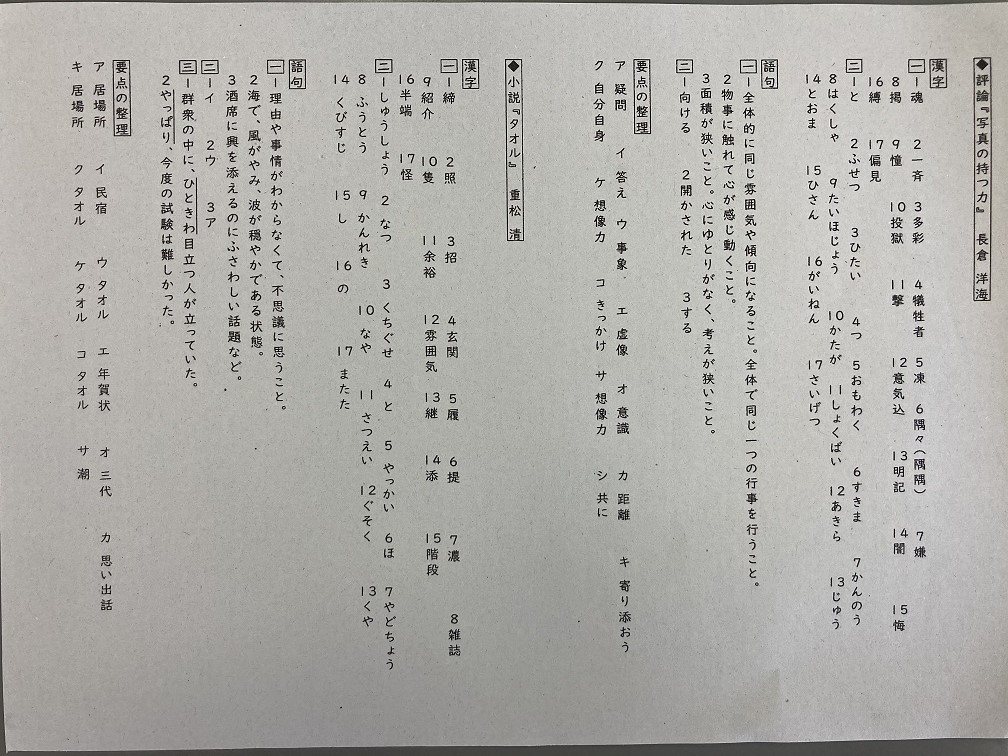 ◆評論『写真の持つ力』 長倉 洋海
漢字
一 1魂 2一斉 3多彩 4犠牲者 5凍 6隅々(隅隅) 7嫌
8掲 9憧 10投獄 11撃 12意気込 13明記 14闇 15悔
16縛 17偏見
二 1と 2ふせつ 3ひたい 4つ 5おもわく 6すきま 7かんのう
8はくしゃ 9たいほじょう 10かたが 11しょくばい 12あきら 13じゅう
14とおま 15ひさん 16がいねん 17さいげつ
語句
一 1全体的に同じ雰囲気や傾向になること。全体で同じ一つの行事を行うこと。
2物事に触れて心が感じ動くこと。
3面積が狭いこと。心にゆとりがなく、考えが狭いこと。
二 1向ける 2開かされた 3する
要点の整理
ア 疑問 イ 答え ウ 事象 エ 虚像 オ 意識 カ 距離 キ 寄り添おう
ク 自分自身 ケ 想像力 コ きっかけ サ 想像力 シ 共に
◆小説『タオル』 重松 清
漢字
一 1締 2照 3招 4玄関 5履 6提 7濃 8雑誌
9紹介 10隻 11余裕 12雰囲気 13継 14添 15階段
16半端 17怪
二 1しゅうしょう 2なつ 3くちぐせ 4と 5やっかい 6ほ 7やどちょう
8ふうとう 9かんれき 10なや 11さつえい 12ぐそく 13くや
14くびすじ 15し 16の 17またた
語句
一 1理由や事情がわからなくて、不思議に思うこと。
2海で、風がやみ、波が穏やかである状態。
3酒席に興を添えるのにふさわしい話題など。
二 1イ 2ウ 3ア
三 1群衆の中に、ひときわ目立つ人が立っていた。
2やっぱり、今度の試験は難しかった。
要点の整理
ア 居場所 イ 民宿 ウ タオル エ 年賀状 オ 三代 カ 思い出話
キ 居場所 ク タオル ケ タオル コ タオル サ 潮